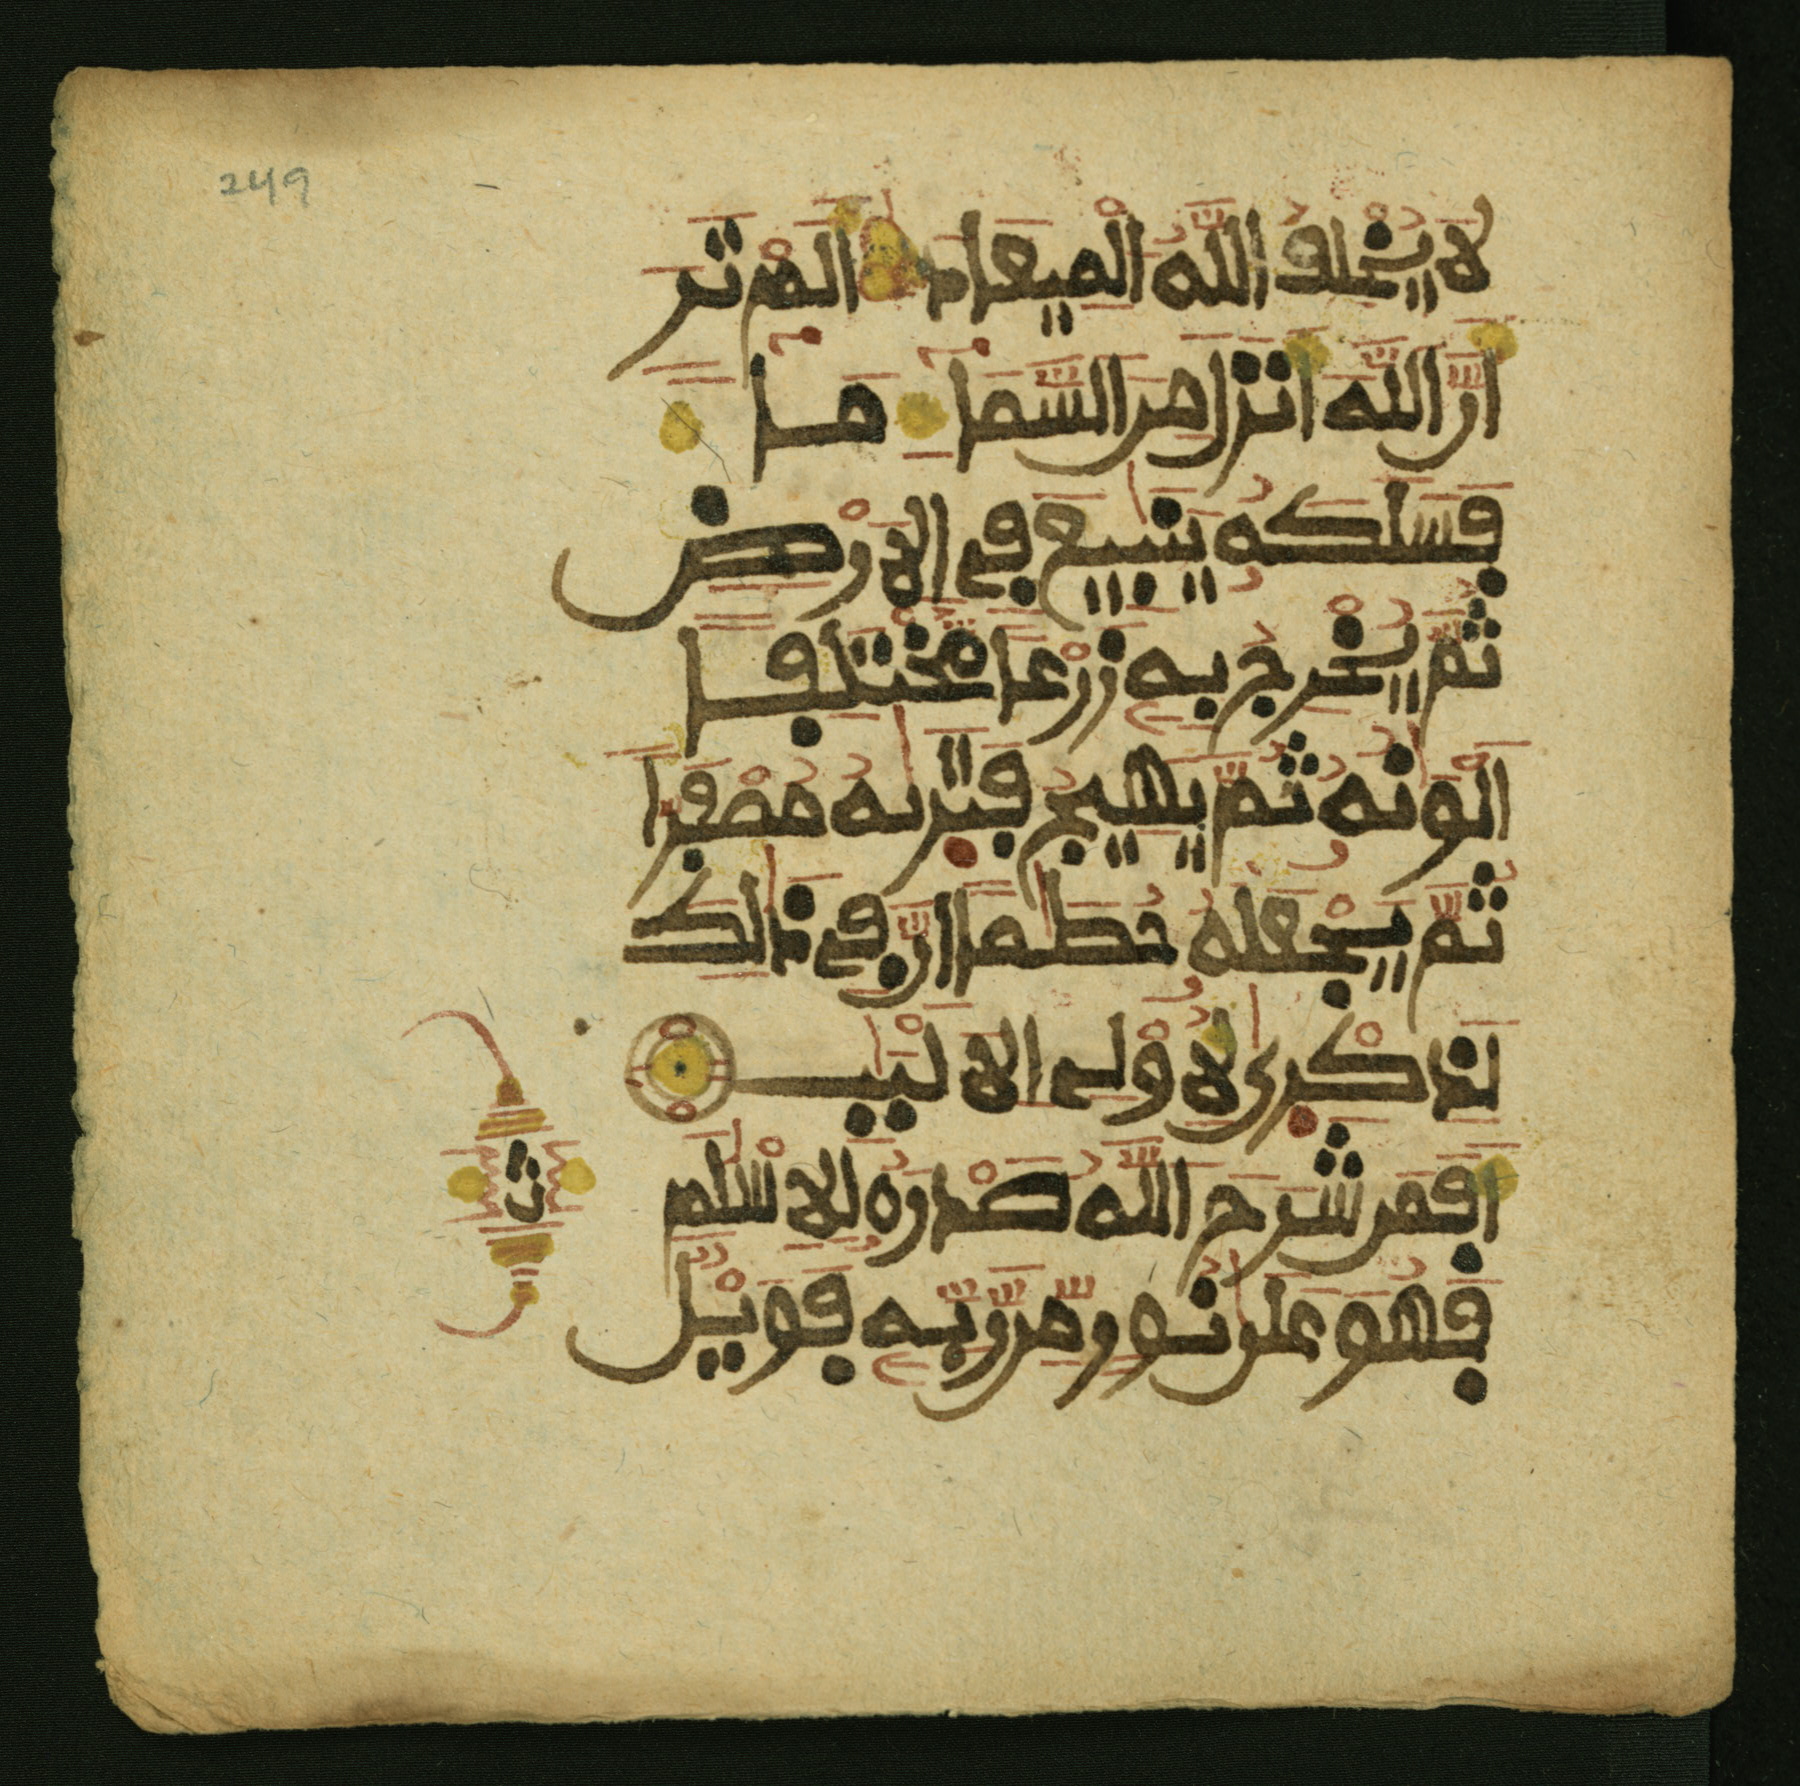 249
لَا يُخْلِفُ اللَّهُ الْمِيعَادَ أَلَمْ تَرَ
أَنَّ اللَّهَ أَنزَلَ مِنَ السَّمَاءِ مَاءً
فَسَلَكَهُ يَنَٰبِيعَ فِي الْأَرْضِ
ثُمَّ يُخْرِجُ بِهِ زَرْعًا مُّخْتَلِفًا
أَلْوَٰنُهُ ثُمَّ يَهِيجُ فَتَرَىٰهُ مُصْفَرًّا
ثُمَّ يَجْعَلُهُ حُطَٰمًا إِنَّ فِي ذَٰلِكَ
لَذِكْرَىٰ لِأُولِي الْأَلْبَٰبِ
أَفَمَن شَرَحَ اللَّهُ صَدْرَهُ لِلْإِسْلَٰمِ
ث
فَهُوَ عَلَىٰ نُورٍ مِّن رَّبِّهِ فَوَيْلٌ